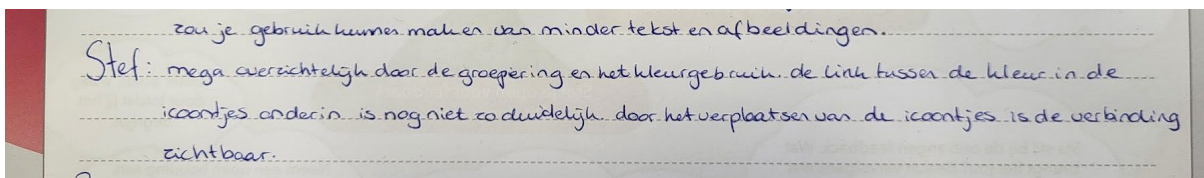 zou je gebruik kunnen maken van minder tekst en afbeeldingen.
Stef: mega overzichtelijk door de groepering en het kleurgebruik. de link tussen de kleur in de
icoontjes onderin is nog niet zo duidelijk. door het verplaatsen van de icoontjes is de verbinding
zichtbaar.